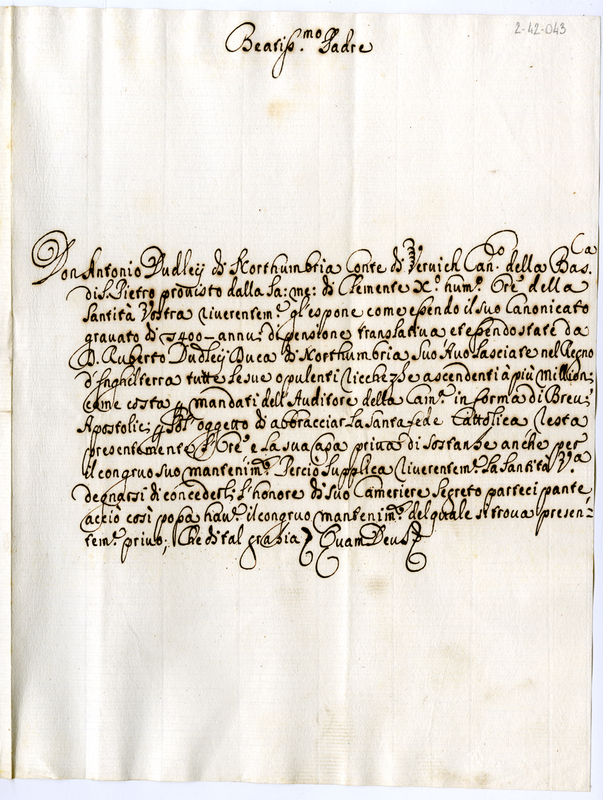 2-42-043
Beatiss.mo Padre
Don Antonio Dudleij di Northumbria Conte di Vervich Can.co della Bas.ca
di S. Pietro provisto dalla Sa: me: di Clemente X.o hum.o Ore della
Santità Vostra riverentem.e gl'espone come essendo il suo Canonicato
gravato di 400 annui di pensione translativa et essendo state da
D. Ruberto Dudley Duca di Northumbria Suo Avo lasciate nel Regno
d'Inghilterra tutte le sue opulenti ricchezze ascendenti à più Millioni
come costa mandati dell'Auditore della Cam.a in forma di Brevi
Apostolici oggetto di abbracciar la Santa fede Cattolica resta
presentemente Ore e la sua Casa priva di Sostanze anche per
il congruo suo mantenim.to Perciò supplica riverentem.e La Santità V.a
degnarsi di concederli l'honore di Suo Cameriere Secreto participante
acciò così possa hav.e il congruo mantenim.to del quale si trova presen-
tem.e privo, Che di tal grazia Quam Deus